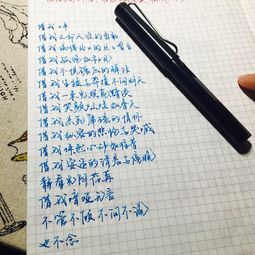 借我十年
借我亡命天涯的勇敢
借我说得出口的旦旦誓言
借我孤绝如初见
借我不惧碾压的鲜活
借我生猛与莽撞不问明天
借我一束光照亮黯淡
借我笑颜灿烂如春天
借我杀死庸碌的情怀
借我纵容的悲怆与哭喊
借我怦然心动如往昔
借我安适的清晨与傍晚
静看光阴荏苒
借我喑哑无言
不管不顾不问不说
也不念